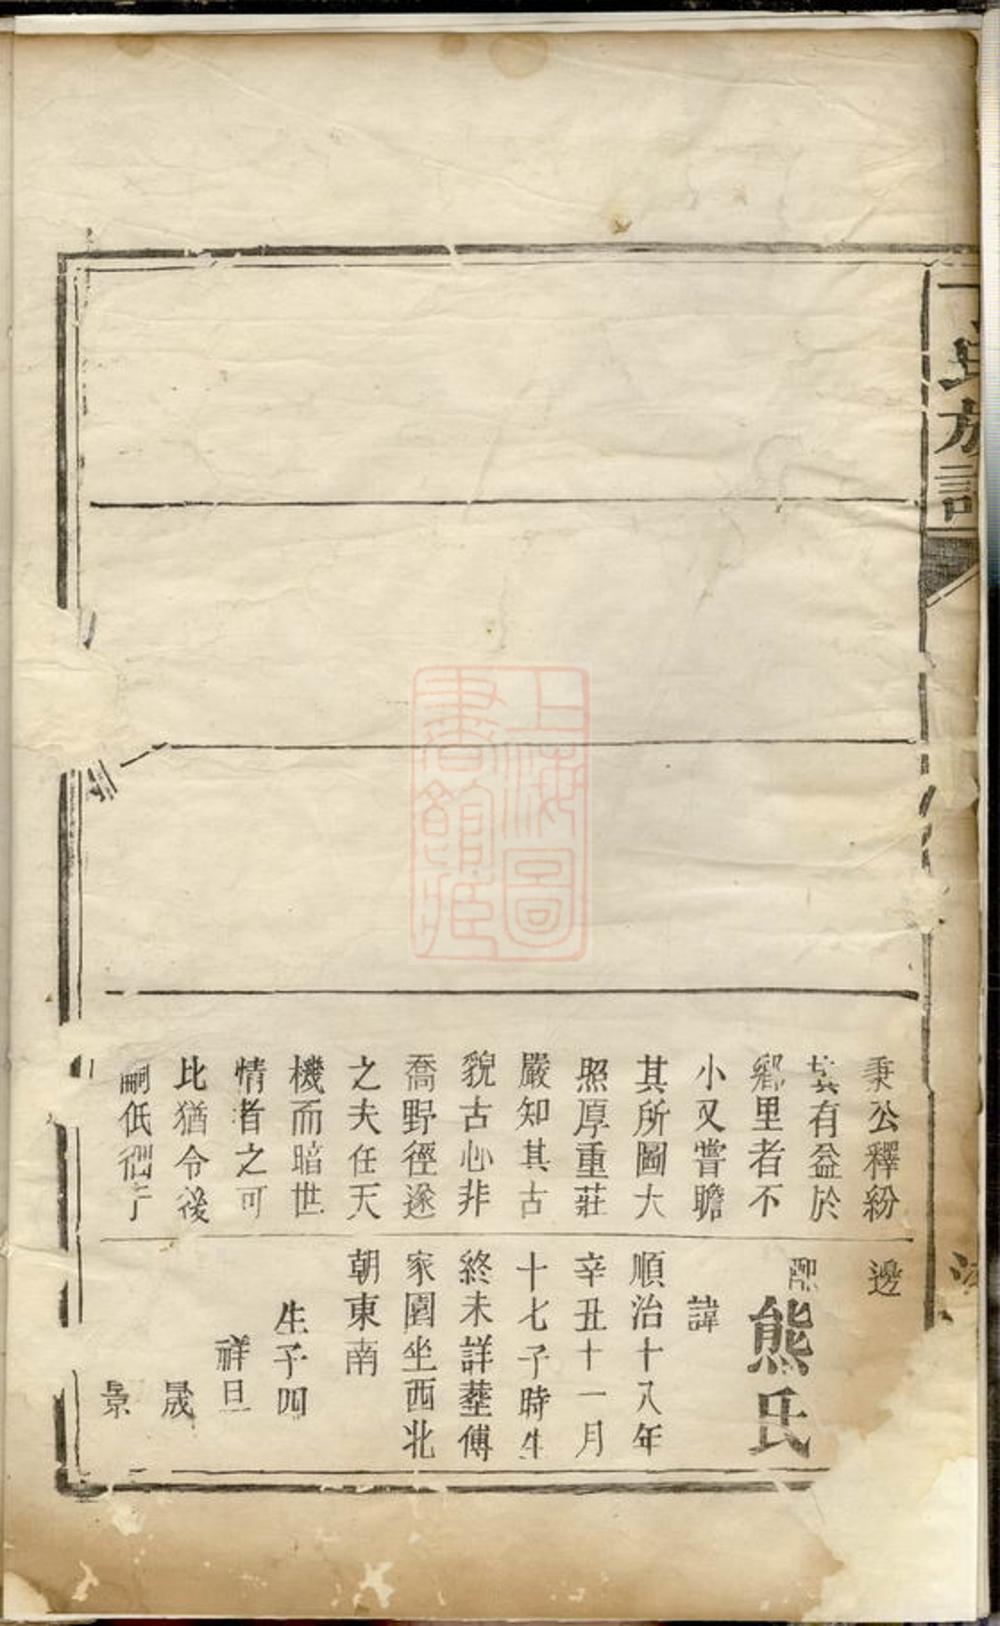 氏族譜
秉公釋紛
其有益於
鄉里者不
小又嘗瞻
其所圖大
照厚重莊
嚴知其古
貌古心非
喬野徑遂
之夫任天
機而暗世
情者之可
比猶令後
嗣低徊
邊
配熊氏
諱
順治十八年
辛丑十一月
十七子時生
終未詳塟傅
家園坐西北
朝東南
生子四
祥旦
晟
景
上海圖
書館藏